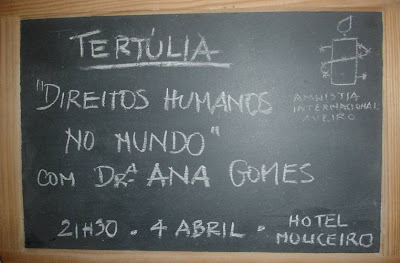 TERTÚLIA
"DIREITOS HUMANOS
NO MUNDO"
COM DRA ANA GOMES
AMNISTIA
INTERNACIONAL
AVEIRO
21H30 . 4 ABRIL . HOTEL
MOLICEIRO